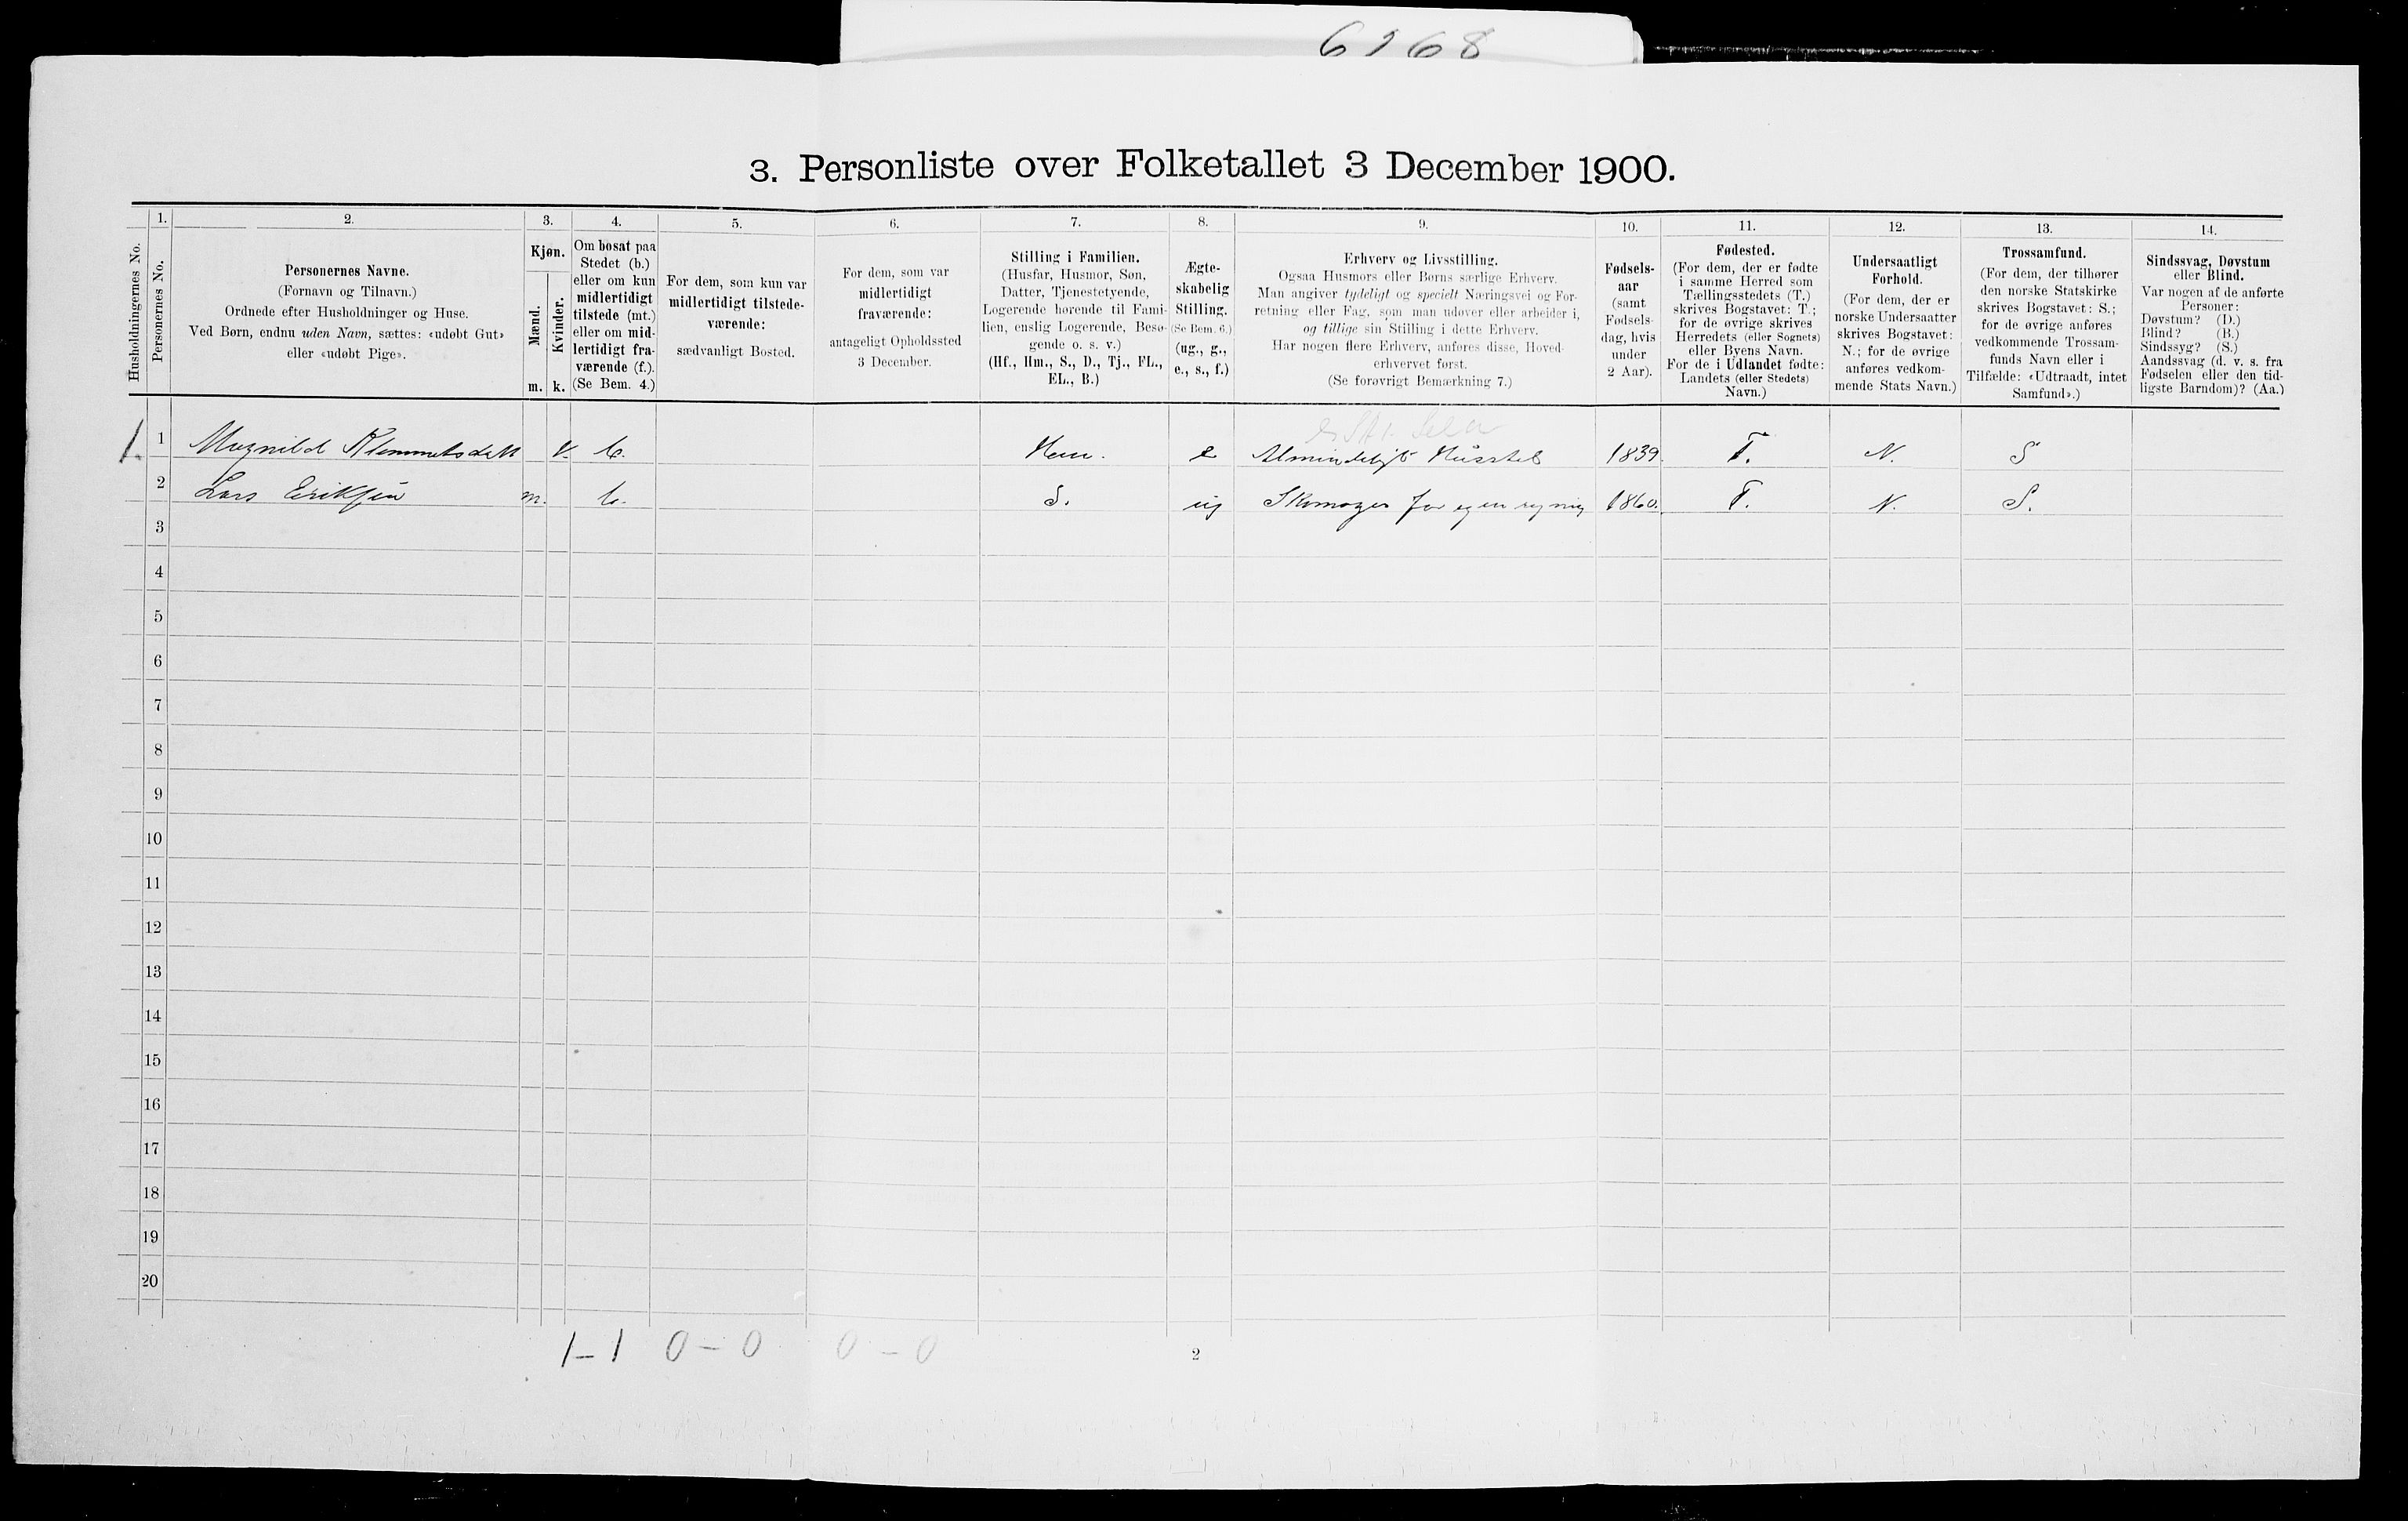 6168
3. Personliste over Folketallet 3 December 1900.
Husholdningernes No.
1.
Personernes No.
2.
Personernes Navne.
(Fornavn og Tilnavn.)
Ordnede efter Husholdninger og Huse.
Ved Børn, endnu uden Navn, sættes: «udøbt Gut»
eller «udøbt Pige».
3.
Kjøn.
Mænd.
m.
Kvinder.
k.
4.
Om bosat paa
Stedet (b.)
eller om kun
midlertidigt
tilstede (mt.)
eller om mid-
lertidigt fra-
værende (f.).
(Se Bem. 4.)
5.
For dem, som kun var
midlertidigt tilstede-
værende:
sædvanligt Bosted.
6.
For dem, som var
midlertidigt
fraværende:
antageligt Opholdssted
3 December.
7.
Stilling i Familien.
(Husfar, Husmor, Søn,
Datter, Tjenestetyende,
Logerende hørende til Fami-
lien, enslig Logerende, Besø-
gende o. s. v.)
(Hf., Hm., S., D., Tj., FL.,
EL., B.)
8.
Ægte-
skabelig
Stilling.
(Se Bem. 6.)
(ug., g.,
e., s., f.)
9.
Erhverv og Livsstilling.
Ogsaa Husmors eller Børns særlige Erhverv.
Man angiver tydeligt og specielt Næringsvei og For-
retning eller Fag, som man udøver eller arbeider i,
og tillige sin Stilling i dette Erhverv.
Har nogen flere Erhverv, anføres disse, Hoved-
erhvervet først.
(Se forøvrigt Bemærkning 7.)
10.
Fødsels-
aar
(samt
Fødsels-
dag, hvis
under
2 Aar).
11.
Fødested.
(For dem, der er fødte
i samme Herred som
Tællingsstedets (T.)
skrives Bogstavet: T.;
for de øvrige skrives
Herredets (eller Sognets)
eller Byens Navn.
For de i Udlandet fødte:
Landets (eller Stedets)
Navn.)
12.
Undersaatligt
Forhold.
(For dem, der er
norske Undersaatter
skrives Bogstavet:
N.; for de øvrige
anføres vedkom-
mende Stats Navn.)
13.
Trossamfund.
(For dem, der tilhører
den norske Statskirke
skrives Bogstavet: S.;
for de øvrige anføres
vedkommende Trossam-
funds Navn eller i
Tilfælde: «Udtraadt, intet
Samfund».)
14.
Sindssvag, Døvstum
eller Blind.
Var nogen af de anførte
Personer:
Døvstum? (D.)
Blind? (B.)
Sindssyg? (S.)
Aandssvag (d. v. s. fra
Fødselen eller den tid-
ligste Barndom)? (Aa.)
1. 1 Magnild Klemmetsdatt k. b. Hm. e Almindeligt Husstel 1839. T. N. S
2 Lars Eriksen m. b. S. ug Skomager for egen regning 1860. T. N. S.
3
4
5
6
7
8
9
10
11
12
13
14
15
16
17
18
19
20
1–1 0–0 0–0
2